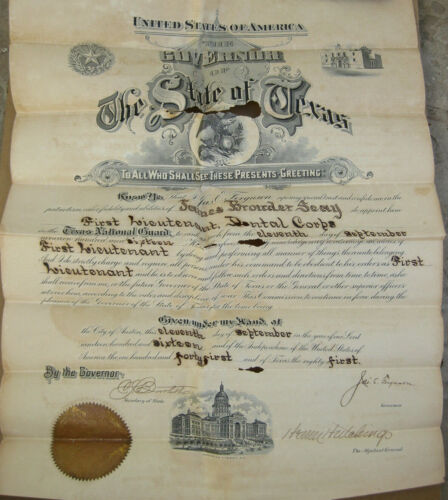 UNITED STATES OF AMERICA
THE
GOVERNOR
OF
The State of Texas
TO ALL WHO SHALL SEE THESE PRESENTS, GREETING:
Know Ye, Jas. E. Ferguson reposing special trust and confidence in the
patriotism James Browder do appoint him
First Lieutenant, Dental Corps
Texas National Guard, to from the eleventh day of September
nineteen hundred and sixteen
First Lieutenant by doing and performing all manner of things thereunto belonging
And I do strictly charge and require all persons under his command to be obedient to his orders as First
Lieutenant and he is to observe such orders and directions from time to time, as he
shall receive from me, or the future Governor of the State of Texas or the General or other superior officers
set over him, according to the rules and discipline of war. This Commission to continue in force during the
pleasure of the Governor of the State of Texas for the time being.
Given under my Hand, at
the City of Austin, this eleventh day of September in the year of our Lord
nineteen hundred and sixteen and of the Independence of the United States of
America the one hundred and fortyfirst and of Texas the eighty first.
By the Governor:
Jas. E. Ferguson
Secretary of State
Governor
The Adjutant General